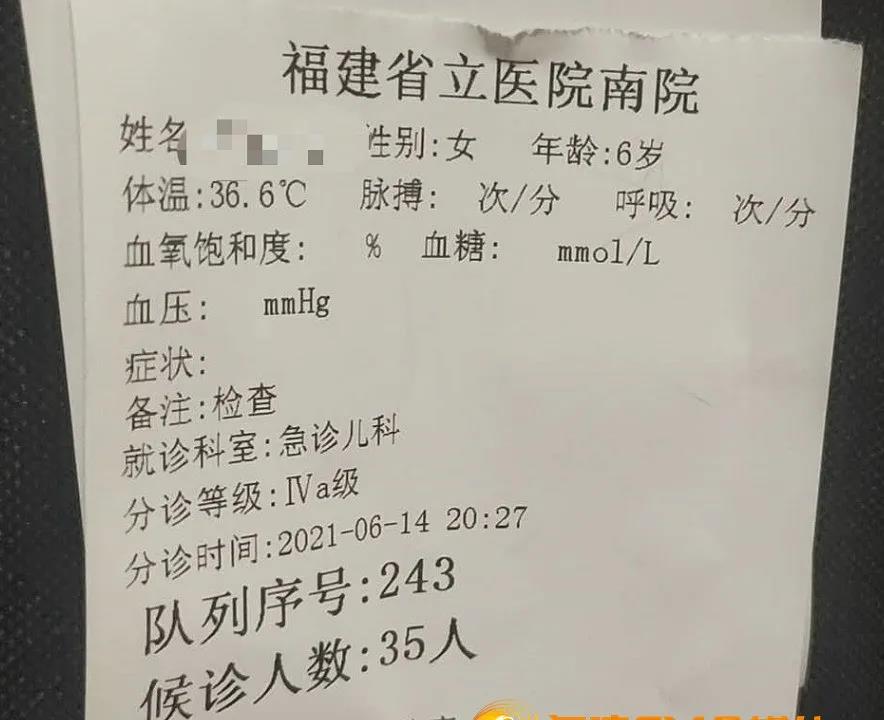 福建省立医院南院
姓名 性别:女 年龄:6岁
体温:36.6℃ 脉搏: 次/分 呼吸: 次/分
血氧饱和度: % 血糖: mmol/L
血压: mmHg
症状:
备注:检查
就诊科室:急诊儿科
分诊等级:Ⅳa级
分诊时间:2021-06-14 20:27
队列序号:243
候诊人数:35人